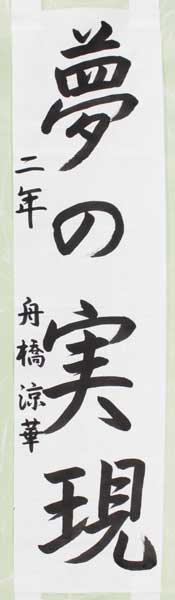 夢の実現
二年 舟橋涼華